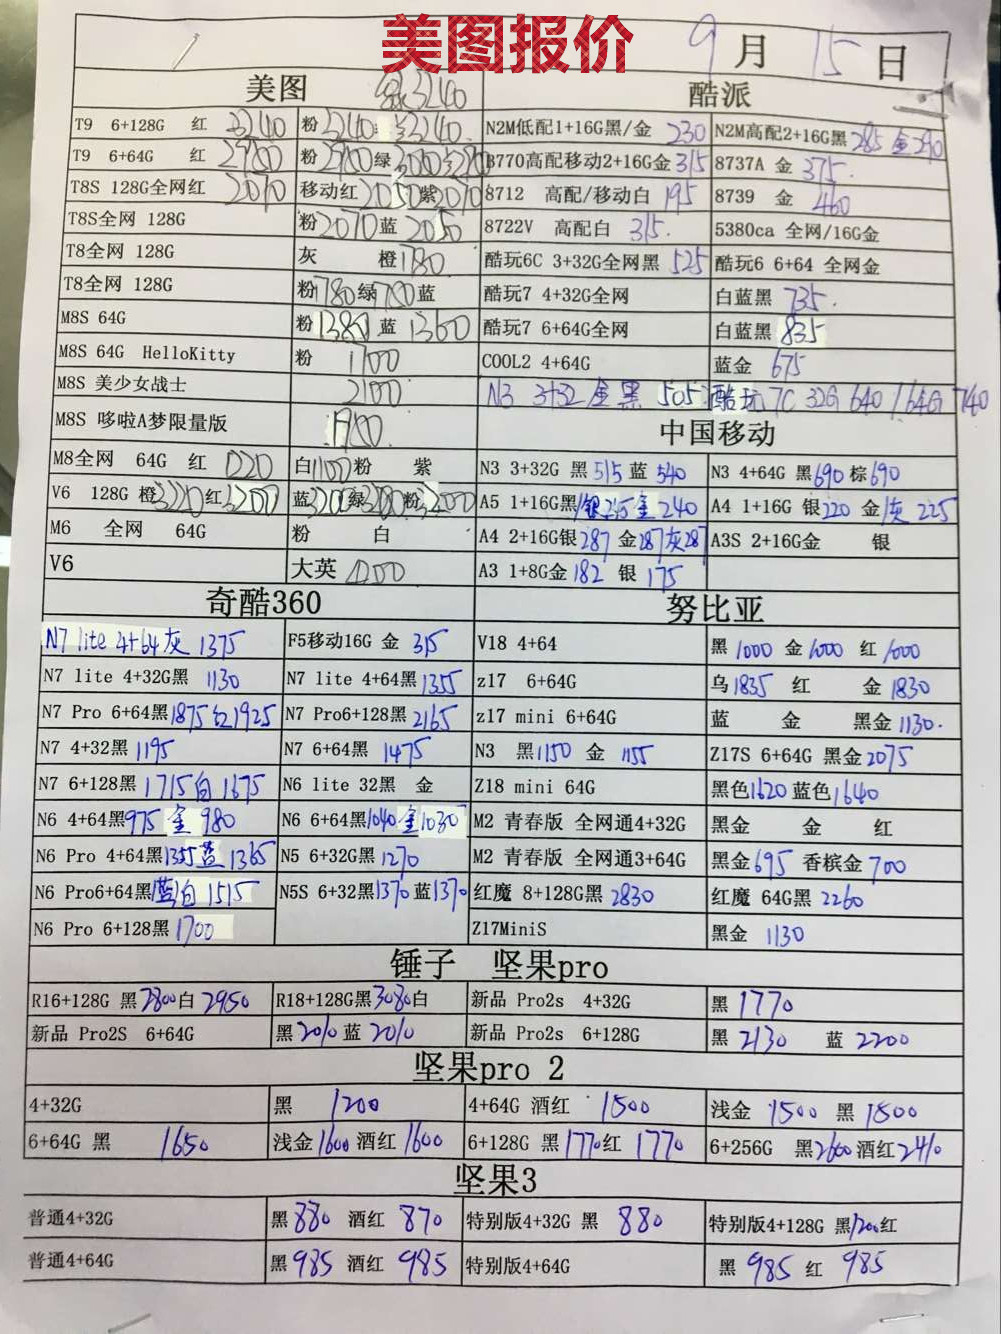 美图报价 9月15日
美图 绿3240 酷派
T9 6+128G 红 3240 粉3240 3240 N2M低配1+16G黑/金 230 N2M高配2+16G黑 285 金290
T9 6+64G 红 2980 粉 2980绿3000 8770高配移动2+16G金 315 8737A 金 375.
T8S 128G全网红 2070 移动红2050紫2070 8712 高配/移动白 195 8739 金 460
T8S全网 128G 粉2070蓝 2050 8722V 高配白 315. 5380ca 全网/16G金
T8全网 128G 灰 橙1780 酷玩6C 3+32G全网黑 525 酷玩6 6+64 全网金
T8全网 128G 粉1780绿1780蓝 酷玩7 4+32G全网 白蓝黑 735.
M8S 64G 粉1380 蓝 1360 酷玩7 6+64G全网 白蓝黑 835
M8S 64G HelloKitty 粉 1700 COOL2 4+64G 蓝金 675
M8S 美少女战士 2100 N3 3+32 金黑 505 酷玩7C 32G 640 / 64G 740
M8S 哆啦A梦限量版 中国移动
M8全网 64G 红 1220 白1100粉 紫 N3 3+32G 黑 515 蓝 540 N3 4+64G 黑690 棕690
V6 128G 橙3220红3200 蓝3200绿3200粉3200 A5 1+16G黑/银245 金240 A4 1+16G 银220 金/灰 225
M6 全网 64G 粉 白 A4 2+16G银287 金287灰287 A3S 2+16G金 银
V6 大英 4200 A3 1+8G金 182 银 175
奇酷360 努比亚
N7 lite 4+64灰 1375 F5移动16G 金 315 V18 4+64 黑 1000 金1000 红 1000
N7 lite 4+32G黑 1130 N7 lite 4+64黑1355 z17 6+64G 乌1835 红 金 1830
N7 Pro 6+64黑1875红1925 N7 Pro6+128黑2165 z17 mini 6+64G 蓝 金 黑金 1130.
N7 4+32黑 1195 N7 6+64黑 1475 N3 黑1150 金 1155 Z17S 6+64G 黑金2075
N7 6+128黑 1715白 1675 N6 lite 32黑 金 Z18 mini 64G 黑色1620 蓝色1640
N6 4+64黑975 金 980 N6 6+64黑1040金1030 M2 青春版 全网通4+32G 黑金 金 红
N6 Pro 4+64黑1355蓝 1365 N5 6+32G黑 1270 M2 青春版 全网通3+64G 黑金695 香槟金 700
N6 Pro6+64黑/蓝/白 1515 N5S 6+32黑1370 蓝1370 红魔 8+128G黑 2830 红魔 64G黑 2260
N6 Pro 6+128黑 1700 Z17MiniS 黑金 1130
锤子 坚果pro
R16+128G 黑2800白 2950 R18+128G黑3080白 新品 Pro2s 4+32G 黑 1770
新品 Pro2S 6+64G 黑2010 蓝 2010 新品 Pro2s 6+128G 黑 2130 蓝 2200
坚果pro 2
4+32G 黑 1200 4+64G 酒红 1500 浅金 1500 黑 1500
6+64G 黑 1650 浅金1600酒红1600 6+128G 黑1770红 1770 6+256G 黑2600酒红2410
坚果3
普通4+32G 黑 880 酒红 870 特别版4+32G 黑 880 特别版4+128G 黑1200红
普通4+64G 黑985 酒红 985 特别版4+64G 黑 985 红 985